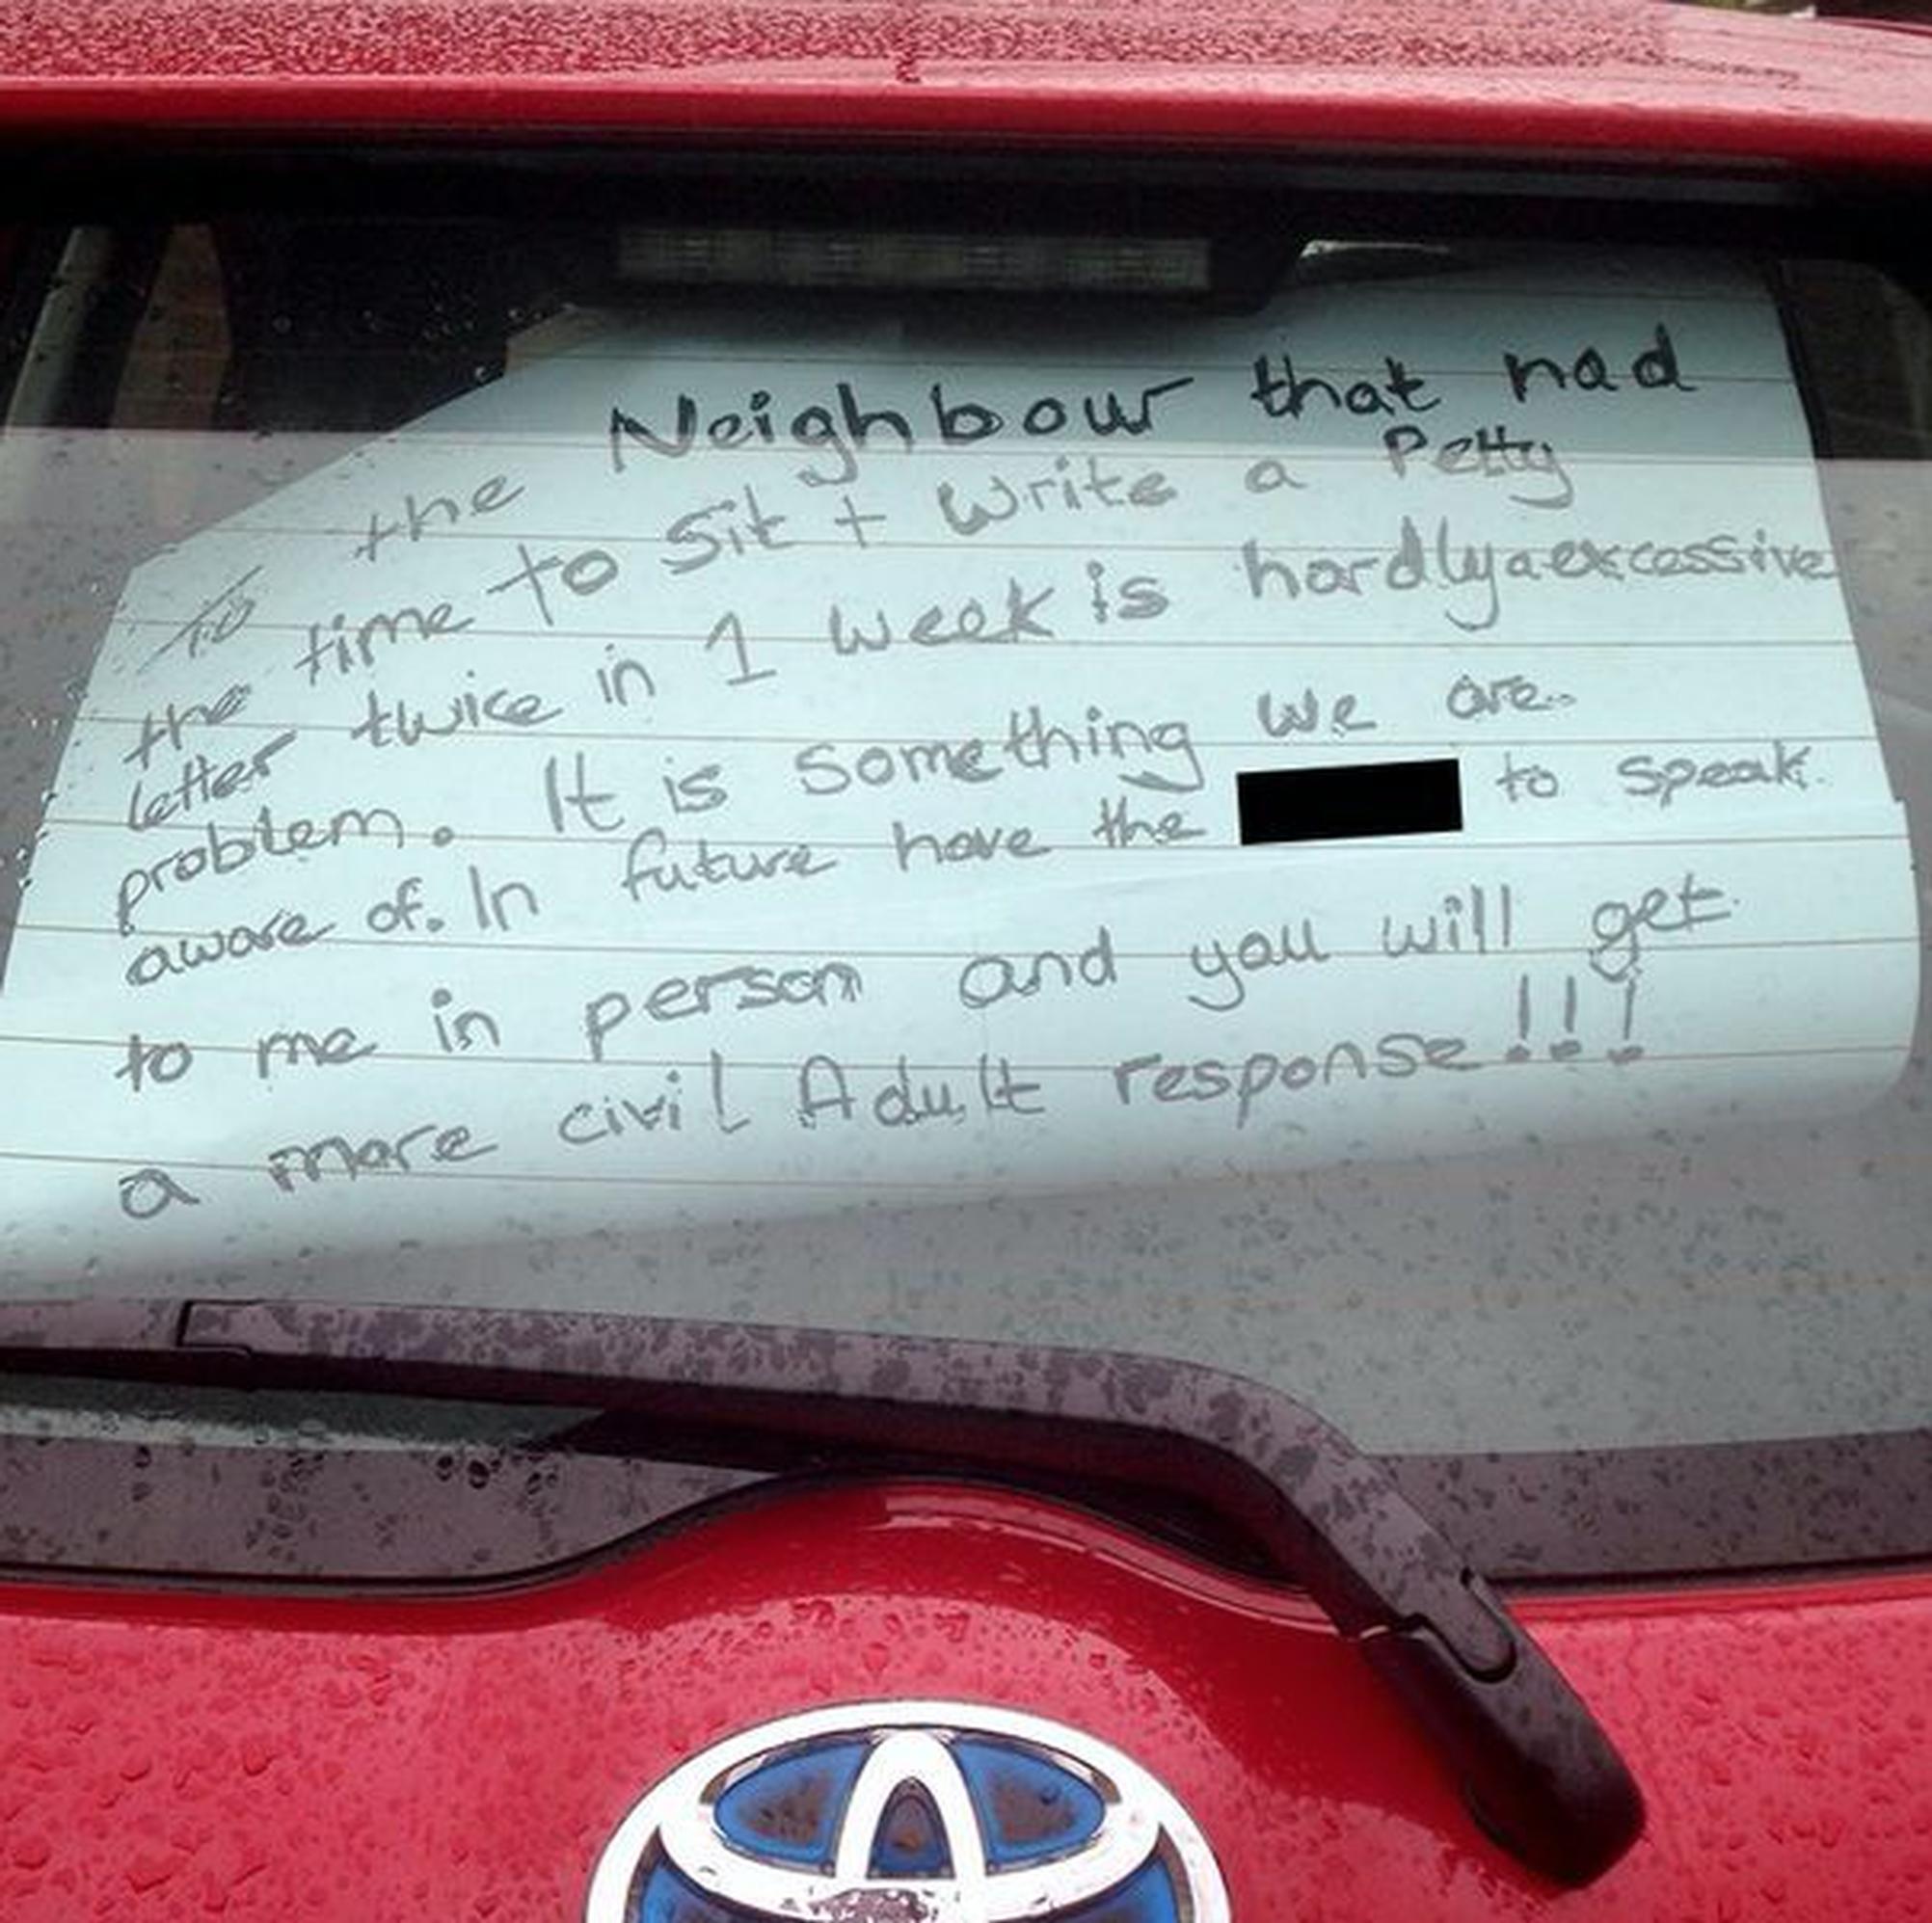 To the Neighbour that had
the time to Sit + Write a Petty
letter twice in 1 week is hardly a excessive
problem. It is something we are
aware of. In future have the to speak
to me in person and you will get
a more civil Adult response!!!